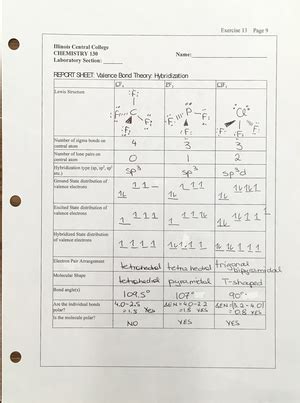 Exercise 13 Page 9
Illinois Central College
CHEMISTRY 130
Laboratory Section:
Name:
REPORT SHEET: Valence Bond Theory: Hybridization
CF₄ PF₃ ClF₃
Lewis Structure
Number of sigma bonds on central atom 4 3 3
Number of lone pairs on central atom 0 1 2
Hybridization type (sp, sp², sp³ etc.) sp³ sp³ sp³d
Ground State distribution of valence electrons
Excited State distribution of valence electrons
Hybridized State distribution of valence electrons
Electron Pair Arrangement tetrahedral tetrahedral trigonal bipyramidal
Molecular Shape tetrahedral pyramidal T-shaped
Bond angle(s) 109.5° 107° 90°
Are the individual bonds polar? 4.0-2.5 =1.5 Yes ΔEN=4.0-2.2 =1.8 YES YES
Is the molecule polar? NO YES YES